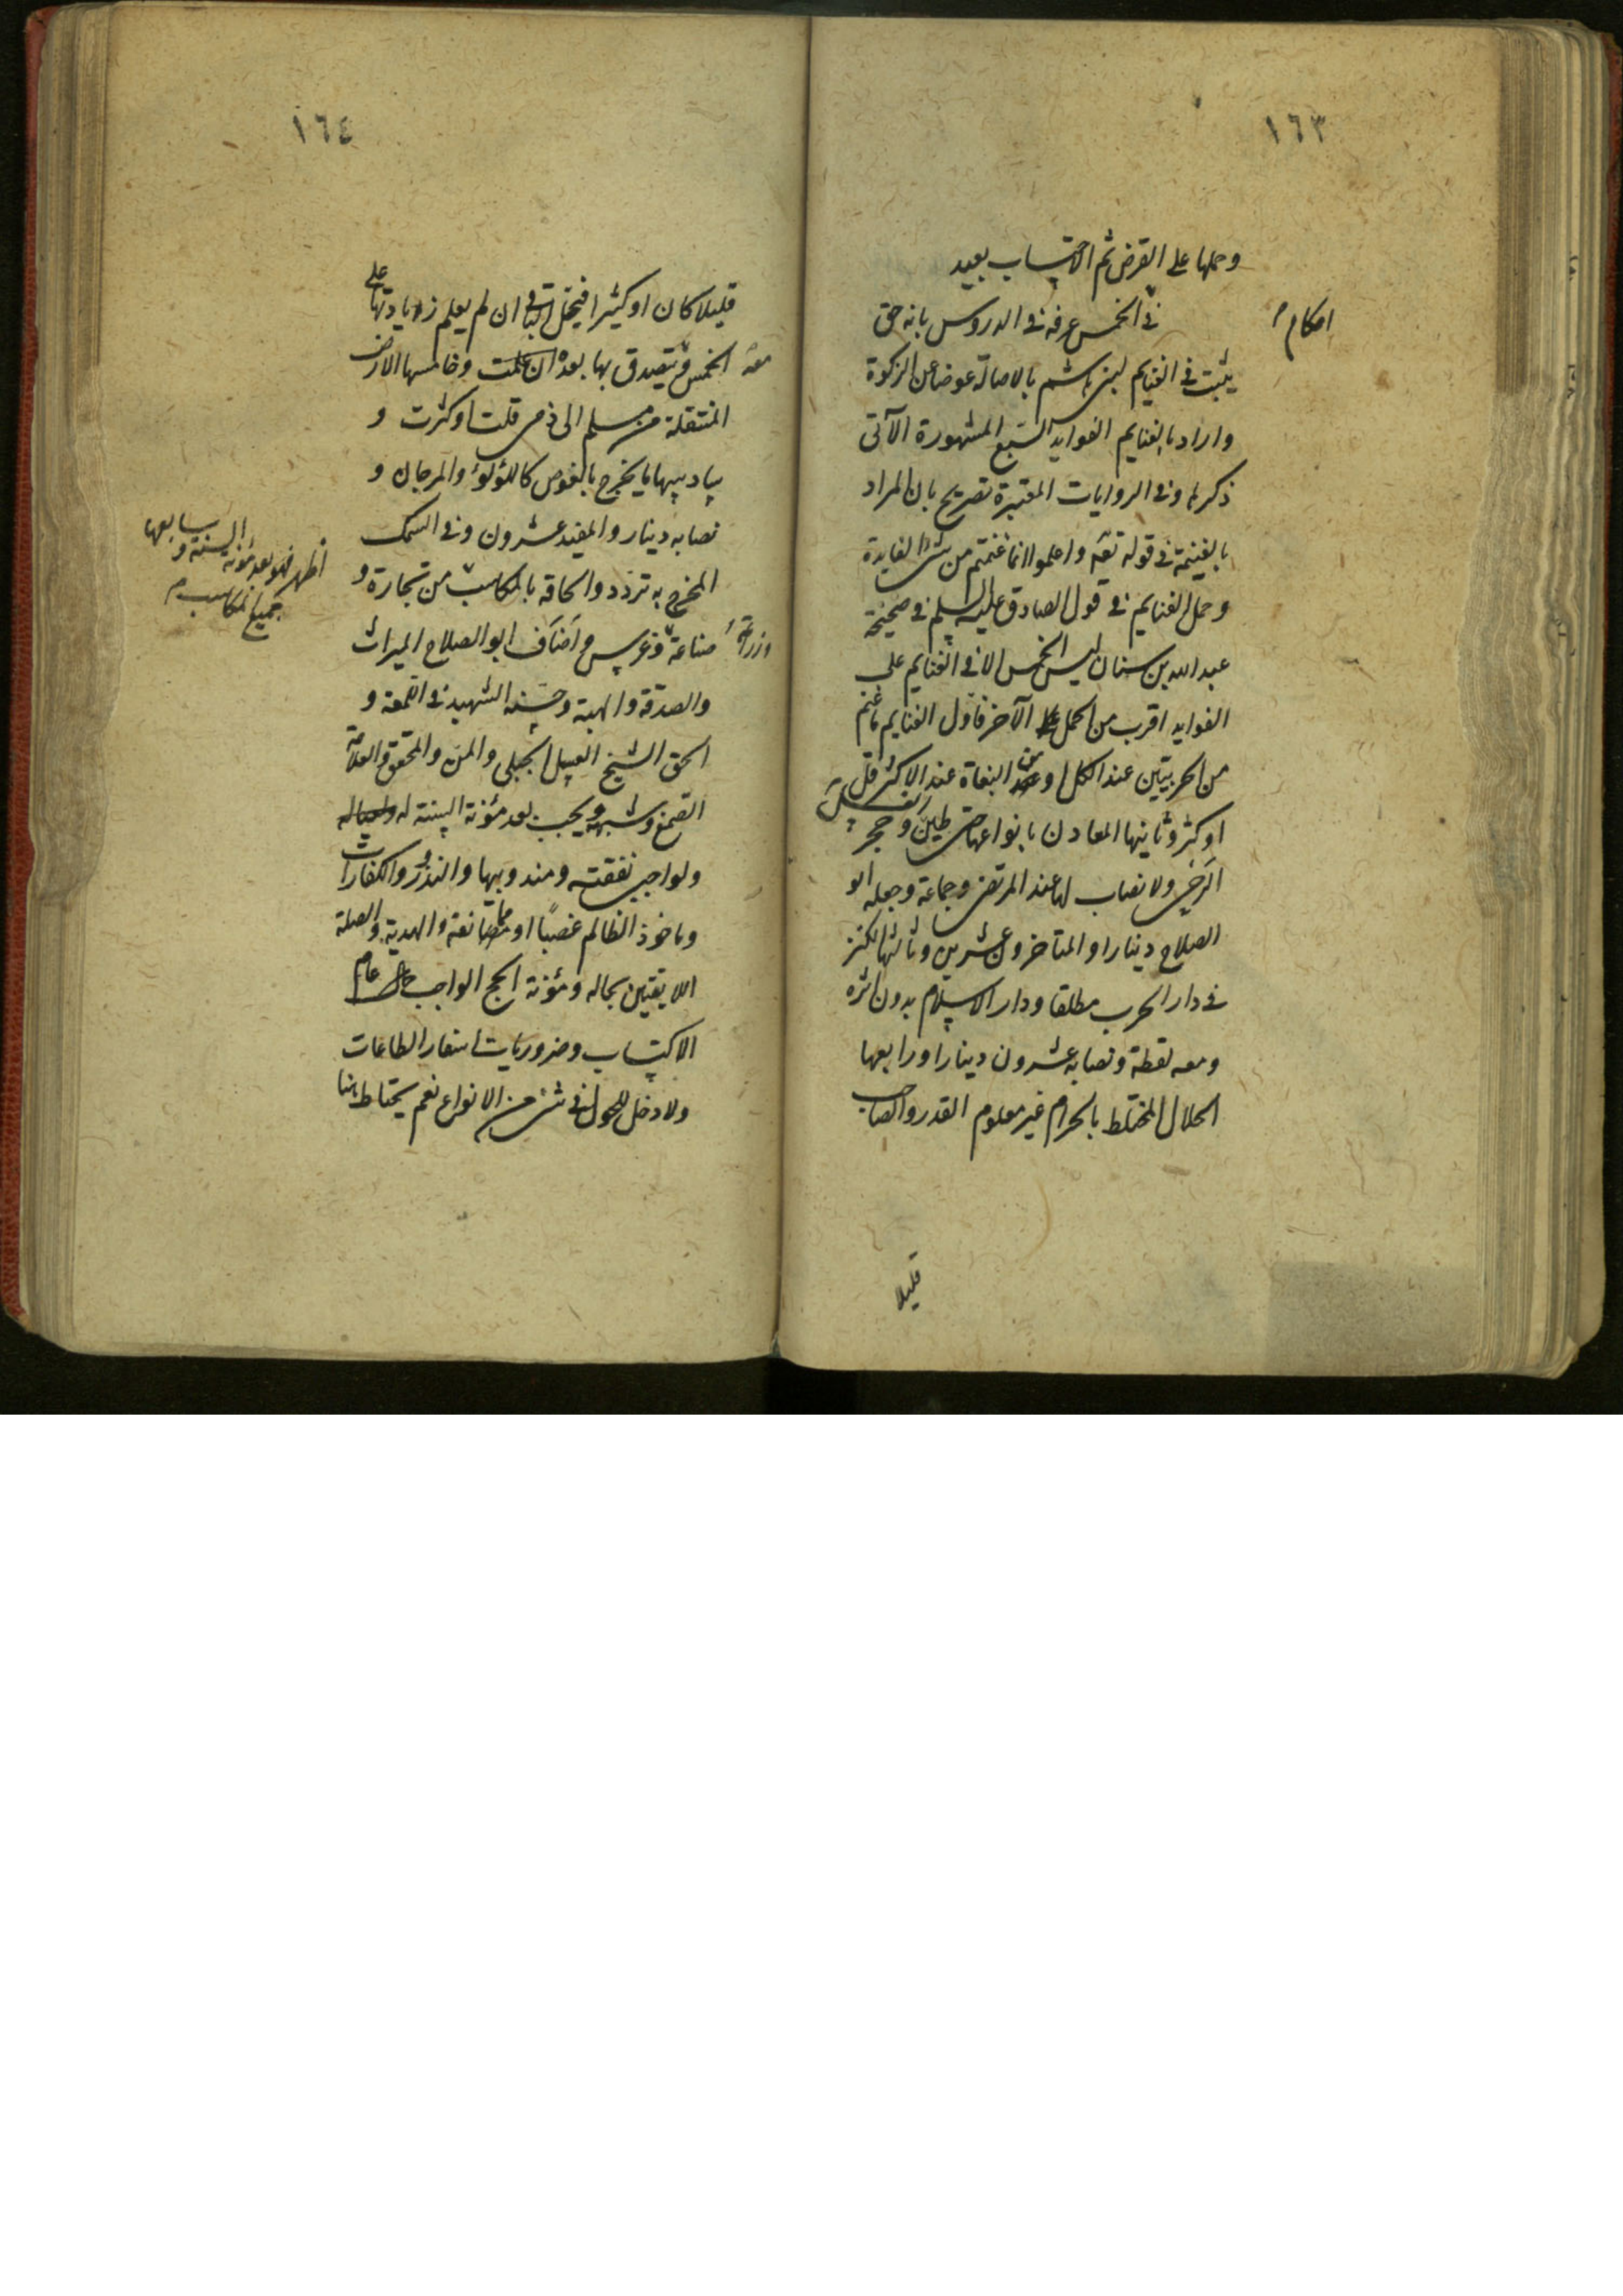 ١٦٣
وحملها على القرض ثم الاحتساب بعيد
احكام
في الخمس عرفه في الدروس بانه حق
يثبت في الغنايم لبني هاشم بالاصالة عوضا عن الزكوة
واراد بالغنايم الفوايد السبع المشهورة الآتى
ذكرها وفى الروايات المعتبرة تصريح بان المراد
بالغنيمة في قوله تعه واعلموا انما غنمتم من شئ الفايدة
وحمل الغنايم في قول الصادق عليه السلم في صحيحة
عبد الله بن سنان ليس الخمس الا في الغنايم على
الفوايد اقرب من الحمل الآخر فاول الغنايم ما غنم
من الحربيين عند الكل او من البغاة عند الاكثر قل
او كثر وثانيها المعادن بانواعها حتى طين وحجر
الرحى ولا نصاب لها عند المرتضى وجماعة وجعله ابو
الصلاح دينارا والمتاخرون عشرين وثالثها الكنز
في دار الحرب مطلقا ودار الاسلام بدون اثره
ومعه لقطة ونصابه عشرون دينارا ورابعها
الحلال المختلط بالحرام غير معلوم القدر والصاحب
قليلا
١٦٤
قليلا كان او كثيرا فيحل الباقى ان لم يعلم زيادتها على
الخمس ويتصدق بها بعده ان علمت وخامسها الارض
معه
المنتقلة من مسلم الى ذمى قلت او كثرت و
سادسها ما يخرج بالغوص كاللؤلؤ والمرجان و
نصابه دينار والمفيد عشرون وفى السمك
المخرج به تردد والحاقه بالمكاسب من تجارة و
اظهر فهو بعد مؤنة السنة وسابعها
جميع المكاسب
صناعة وغرس واضاف ابو الصلاح الميراث
وزراعة
والصدقة والهبة وحسنه الشهيد في اللمعة و
الحق الشيخ العسل الجبلى والمن والمحقق والعلامة
الصمغ وشبهه ويجب بعد مؤنة السنة له
ولواجبى نفقته ومندوبيها والنذور والكفارات
وماخوذ الظالم غصبا او مصانعة والهدية والصلة
اللايقتين بحاله ومؤنة الحج الواجب عام
الاكتساب وضروريات اسفار الطاعات
ولا دخل للحول في شئ من الانواع نعم يحتاط هنا